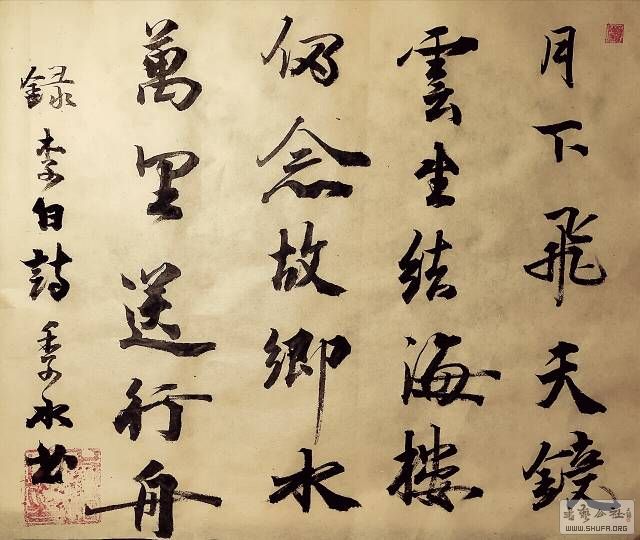 月下飛天鏡
雲生結海樓
仍念故鄉水
萬里送行舟
錄李白詩 季水书
WWW.SHUFA.ORG